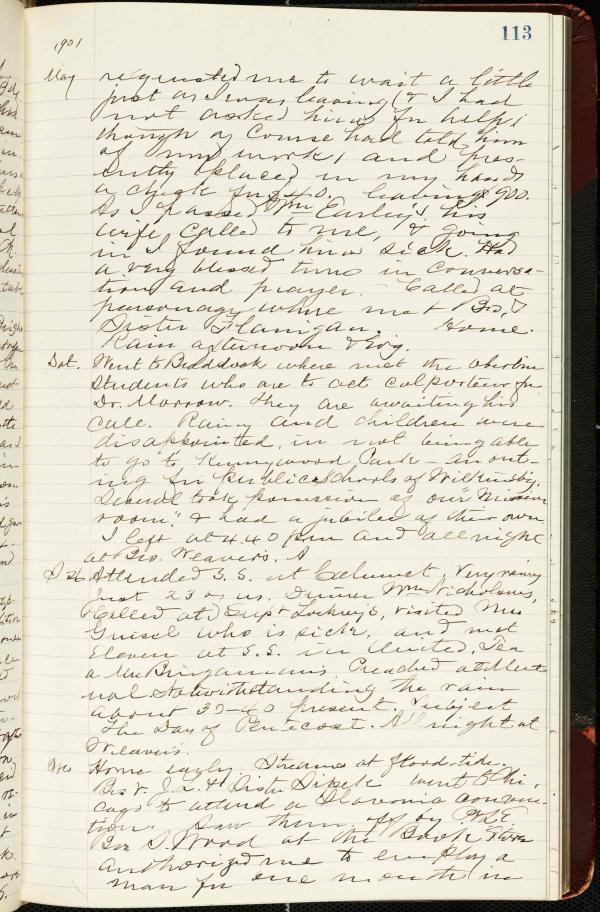 113
1901
May requested me to wait a little
just as I was leaving (& I had
not asked him for help,
though of course had told him
of my work) and pres-
ently placed in my hands
a check for $40. leaving $900.
As I passed Wm Earley's his
wife called to me, & going
in I found him sick. Had
a very blessed time in conversa-
tion and prayer. Called at
parsonage where met Bro. &
Sister Flanigan. Home.
Rain afternoon & Evg.
Sat. Went to Braddock where met the Oberlin
Students who are to act colporteur for
Dr. Morrow. They are awaiting his
call. Rainy and children were
disappointed in not being able
to go to Kennywood Park - an out-
ing for public schools of Wilkinsbg.
Several took possession of our "Mission
room" & had a jubilee of their own
I left at 4.40 pm and all night
at Bro. Weavers. A
S 26 Attended S. S. at Calumet. Very rainy
but 23 of us. Dinner Wm Nicholsons,
Called at Supt Lockrey's, visited Mrs
Grisel who is sick, and met
Eleven at S. S. in United. Tea
a Mr Bringamans. Preached at
notwithstanding the rain
about 35-40 present. Subject
The Day of Pentecost. All night at
Weavers.
Home early. Streams at flood-tide.
Bro V. J. L. & Sister went to Chi-
cago to attend a Slavonic conven-
tion. Saw them off by
Bro S. Wood at the Book Store
authorized me to employ a
man for one month in